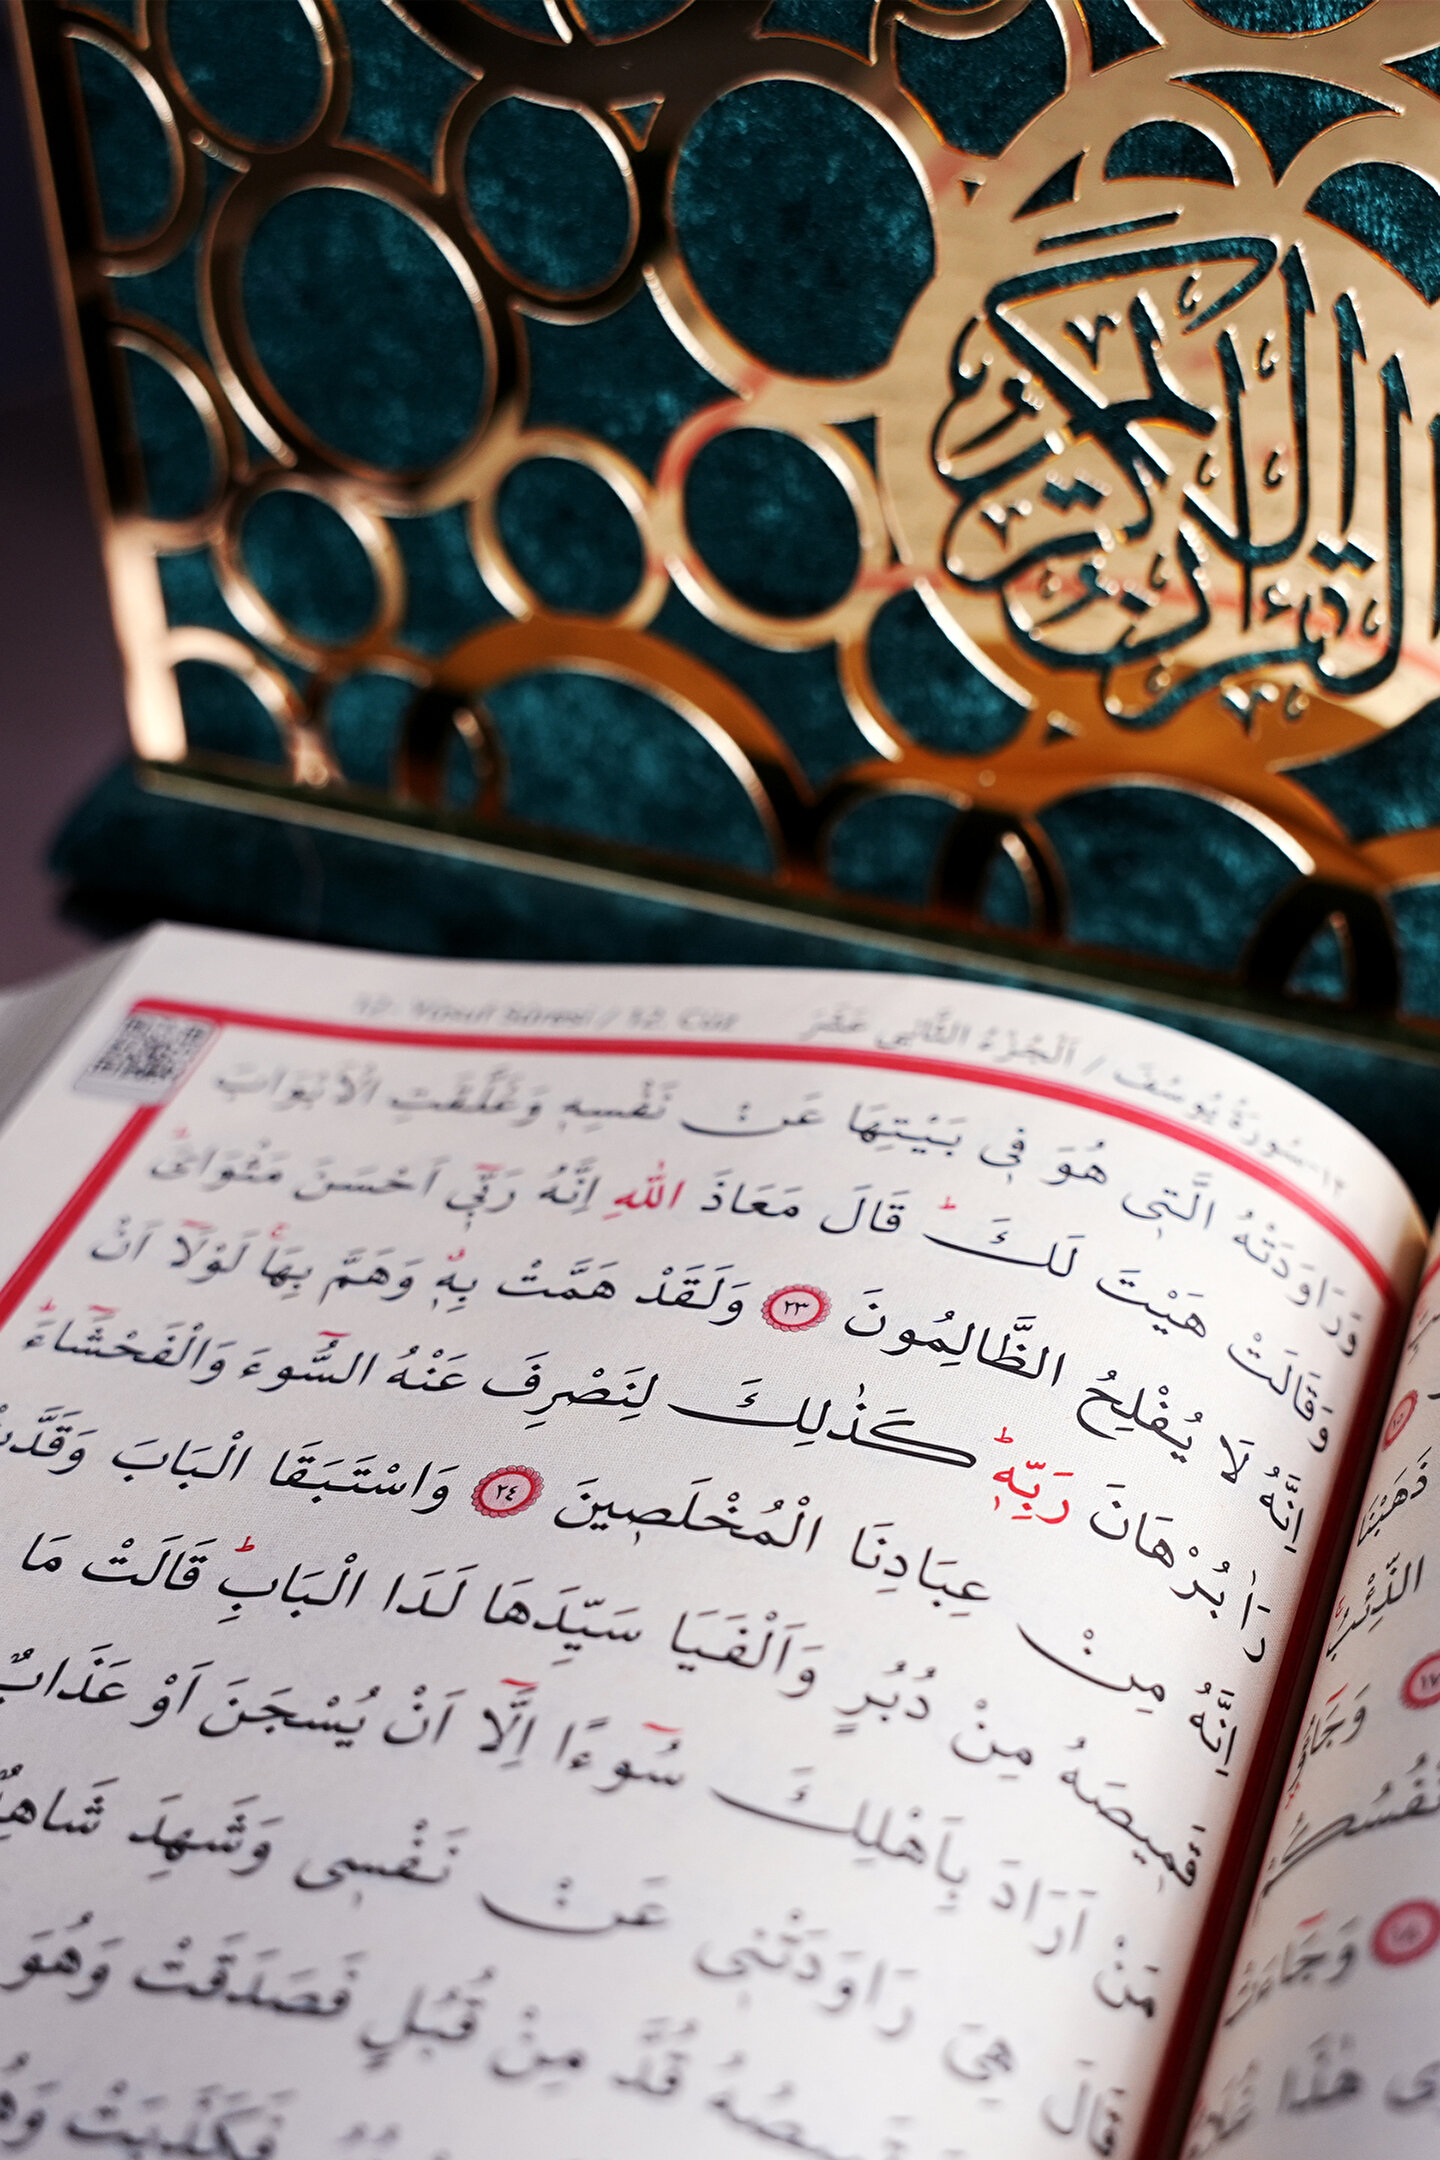 القرآن الكريم
١٢-سُورَةُ يُوسُفَ / اَلْجُزْءُ الثَّانِي عَشَرَ 12. Yûsuf Sûresi / 12. Cüz
وَرَاوَدَتْهُ الَّتٖي هُوَ فٖي بَيْتِهَا عَنْ نَفْسِهٖ وَغَلَّقَتِ الْاَبْوَابَ
وَقَالَتْ هَيْتَ لَكَؕ قَالَ مَعَاذَ اللّٰهِ اِنَّهُ رَبّٖٓي اَحْسَنَ مَثْوَايَؕ
اِنَّهُ لَا يُفْلِحُ الظَّالِمُونَ ٢٣ وَلَقَدْ هَمَّتْ بِهٖۚ وَهَمَّ بِهَاۚ لَوْلَٓا اَنْ
رَاٰ بُرْهَانَ رَبِّهٖؕ كَذٰلِكَ لِنَصْرِفَ عَنْهُ السُّٓوءَ وَالْفَحْشَٓاءَؕ
اِنَّهُ مِنْ عِبَادِنَا الْمُخْلَصٖينَ ٢٤ وَاسْتَبَقَا الْبَابَ وَقَدَّتْ
قَمٖيصَهُ مِنْ دُبُرٍ وَاَلْفَيَا سَيِّدَهَا لَدَا الْبَابِؕ قَالَتْ مَا
مَنْ اَرَادَ بِاَهْلِكَ سُٓوءًا اِلَّٓا اَنْ يُسْجَنَ اَوْ عَذَابٌ
قَالَ هِيَ رَاوَدَتْنٖي عَنْ نَفْسٖي وَشَهِدَ شَاهِدٌ
قَمٖيصُهُ قُدَّ مِنْ قُبُلٍ فَصَدَقَتْ وَهُوَ
فَكَذَبَتْ وَهُوَ
ذَهَبْنَا
الذِّئْبُۚ
١٧ وَجَٓاؤُ
اَنْفُسُكُمْ
١٨ وَجَٓاءَتْ
هٰذَا غُلَامٌ